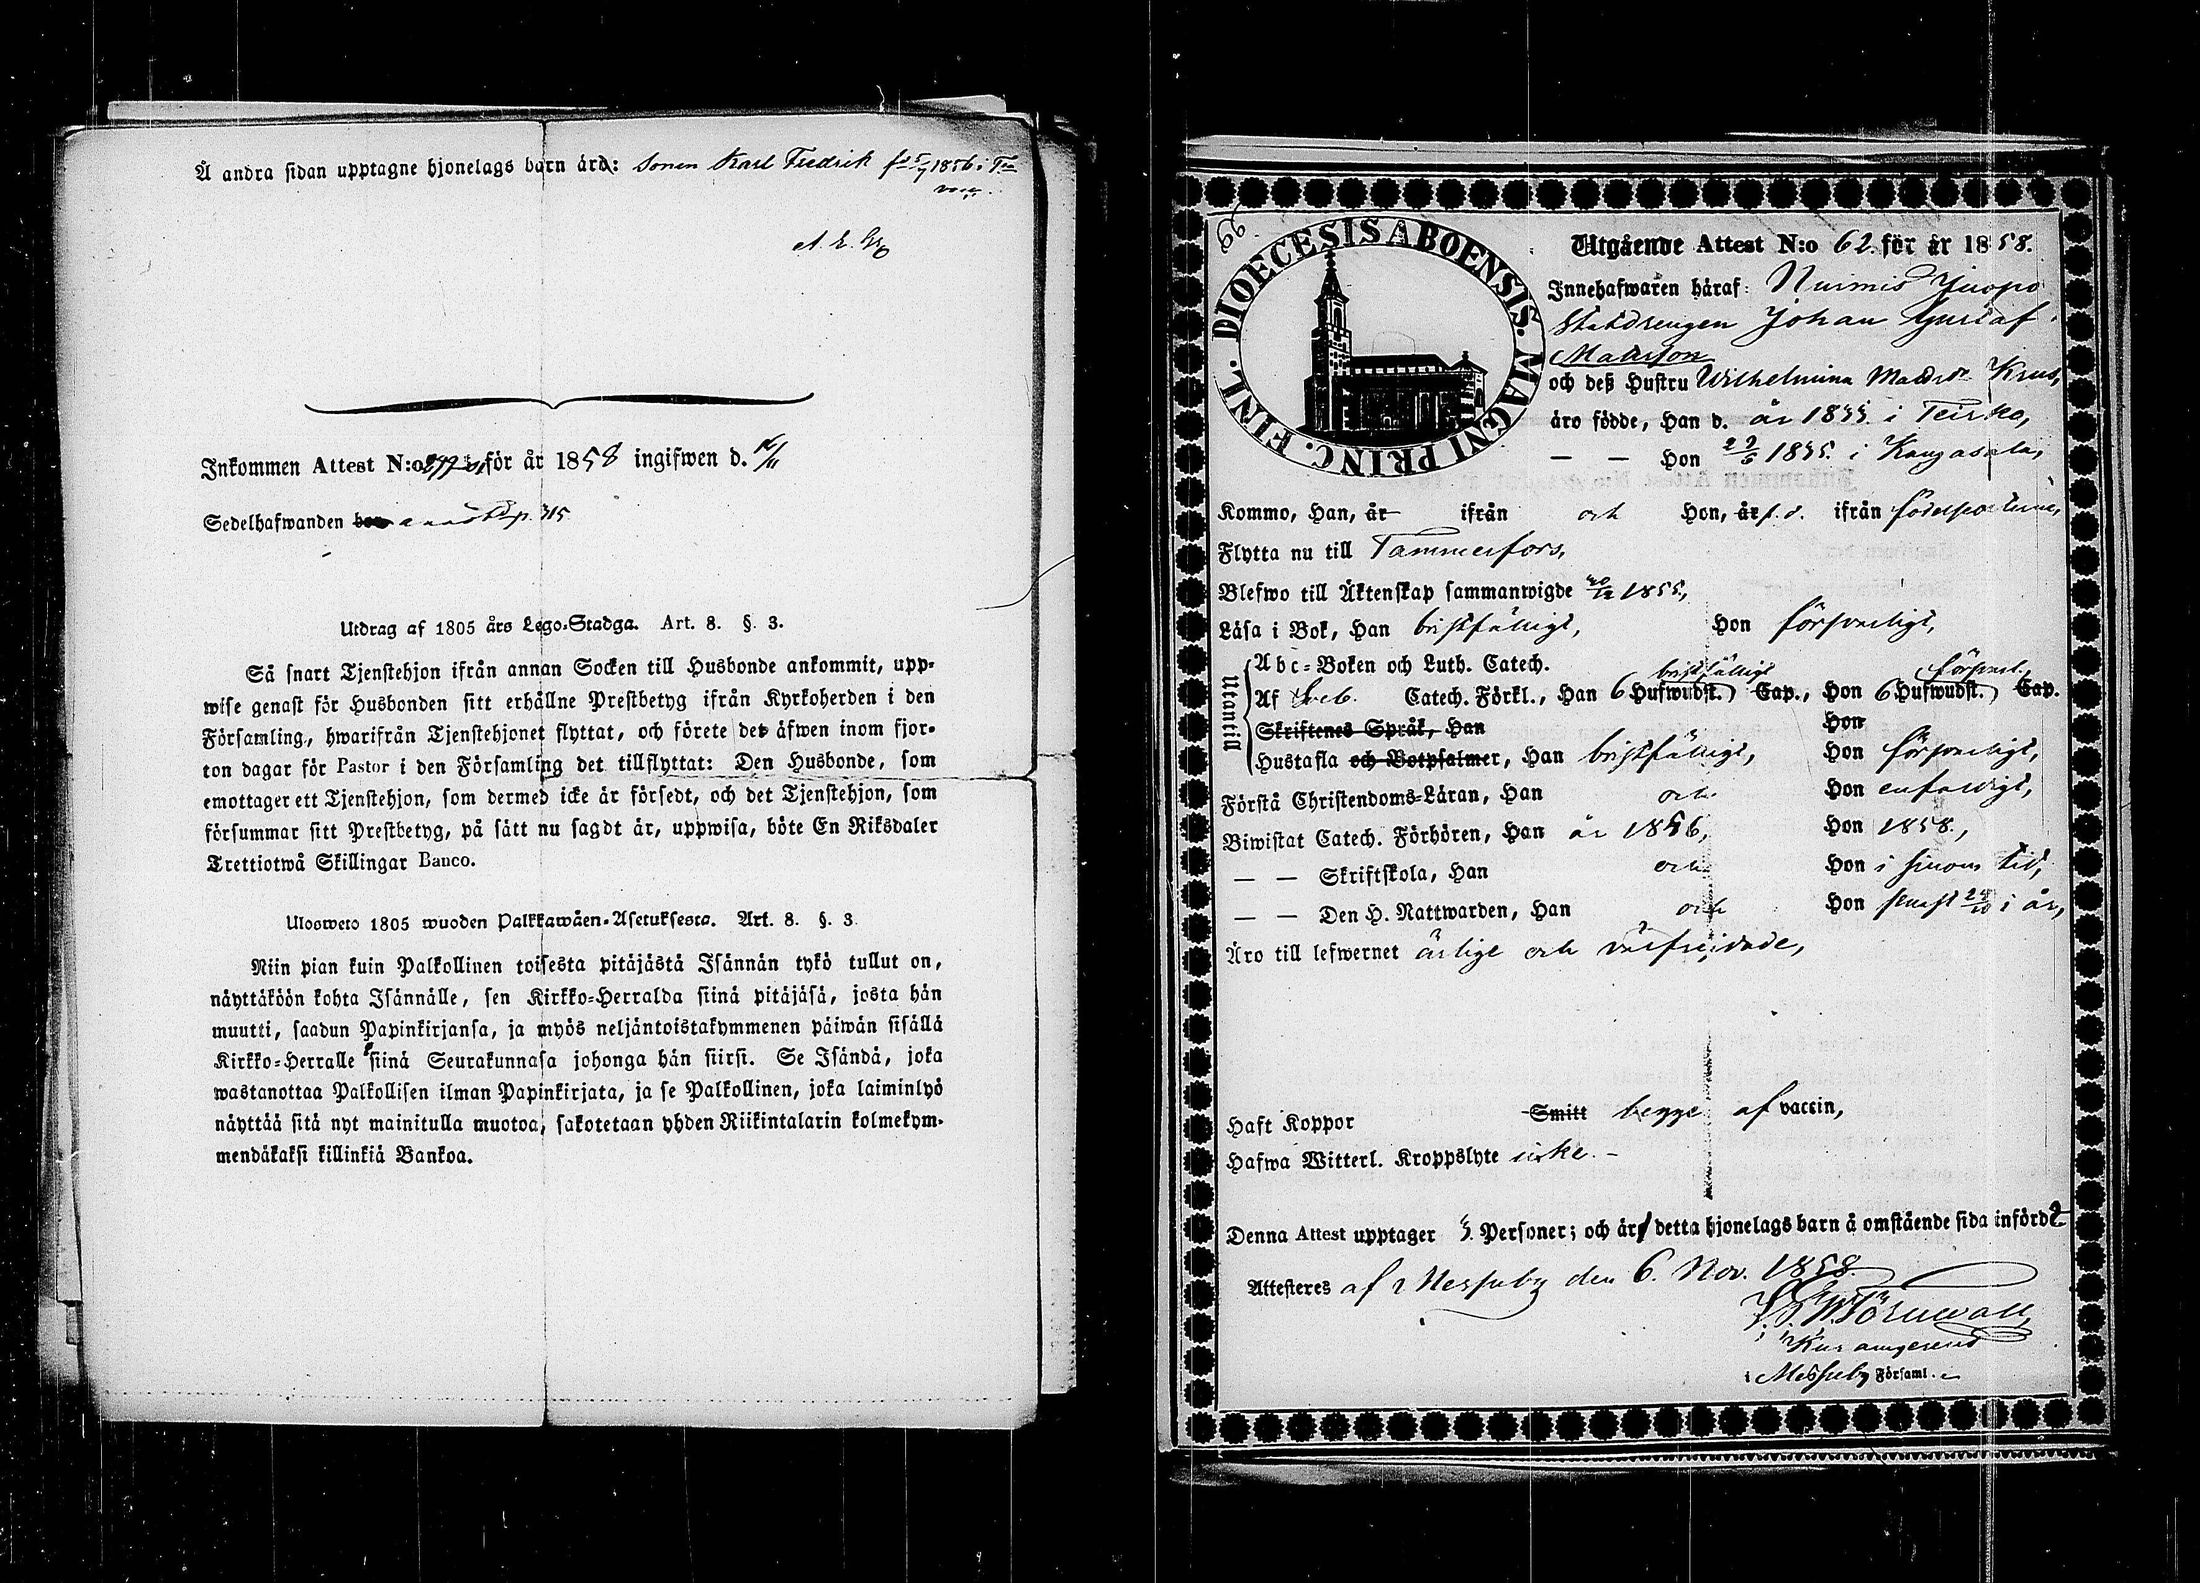 Å andra sidan upptagne hjonelags barn äro: sonen Karl Fredrik f. 5/7 1856 i
Inkommen Attest N:o för år 1858 ingifwen d.
Sedelhafwanden
Utdrag af 1805 års Lego-Stadga. Art. 8. §. 3.
Så snart Tjenstehjon ifrån annan Socken till Husbonde ankommit, upp-
wise genast för Husbonden sitt erhållne Prestbetyg ifrån Kyrkoherden i den
Församling, hwarifrån Tjenstehjonet flyttat, och förete det äfwen inom fjor-
ton dagar för Pastor i den Församling det tillflyttat: Den Husbonde, som
emottager ett Tjenstehjon, som dermed icke är försedt, och det Tjenstehjon, som
försummar sitt Prestbetyg, på sätt nu sagdt är, uppwisa, böte En Riksdaler
Trettiotwå Skillingar Banco.
Ulosweto 1805 wuoden Palkkawäen-Asetuksesta. Art. 8. §. 3.
Niin pian kuin Palkollinen toisesta pitäjästä Isännän tykö tullut on,
näyttäköön kohta Isännälle, sen Kirkko-Herralda siinä pitäjäsä, josta hän
muutti, saadun Papinkirjansa, ja myös neljäntoistakymmenen päiwän sisällä
Kirkko-Herralle siinä Seurakunnasa johonga hän siirsi. Se Isändä, joka
wastanottaa Palkollisen ilman Papinkirjata, ja se Palkollinen, joka laiminlyö
näyttää sitä nyt mainitulla muotoa, sakotetaan yhden Riikintalarin kolmekym-
mendäkaksi killinkiä Bankoa.
DIOECESIS ABOENSIS. MAGNI PRINC. FINL.
Utgående Attest N:o 62 för år 1858.
Innehafwaren häraf: Nurmis Juopo
Statdrengen Johan Gustaf
Matsson
och deß Hustru Wilhelmina Matsdr Krus,
äro födde, Han d. år 1833 i Teisko,
— — Hon 29/6 1835. i Kangasala,
Kommo, Han, år ifrån och Hon, år f. d. ifrån födelseorterne,
Flytta nu till Tammerfors,
Blefwo till Äktenskap sammanwigde 30/12 1855,
Läsa i Bok, Han bristfälligt, Hon försvarligt,
Utantill
Abc-Boken och Luth. Catech.
bristfälligt försvarl.
Af Sveb. Catech. Förkl., Han 6 Hufwudst. Cap., Hon 6 Hufwudst. Cap.
Skriftenes Språk, Han Hon
Hustafla och Botpsalmer, Han bristfälligt, Hon försvarligt,
Förstå Christendoms-Läran, Han och Hon enfaldigt,
Biwistat Catech. Förhören, Han år 1856, Hon 1858,
— — Skriftskola, Han och Hon i sinom tid,
— — Den H. Nattwarden, Han och Hon senast 24/10 i år,
Äro till lefwernet ärligt och välfrejdade,
Haft Koppor Smitt begge af vaccin,
Hafwa Witterl. Kroppslyte icke. –
Denna Attest upptager 3. Personer; och är detta hjonelags barn å omstående sida införde
Attesteres af Messuby den 6. Nov. 1858.
Törnwall
i Messuby Församl.